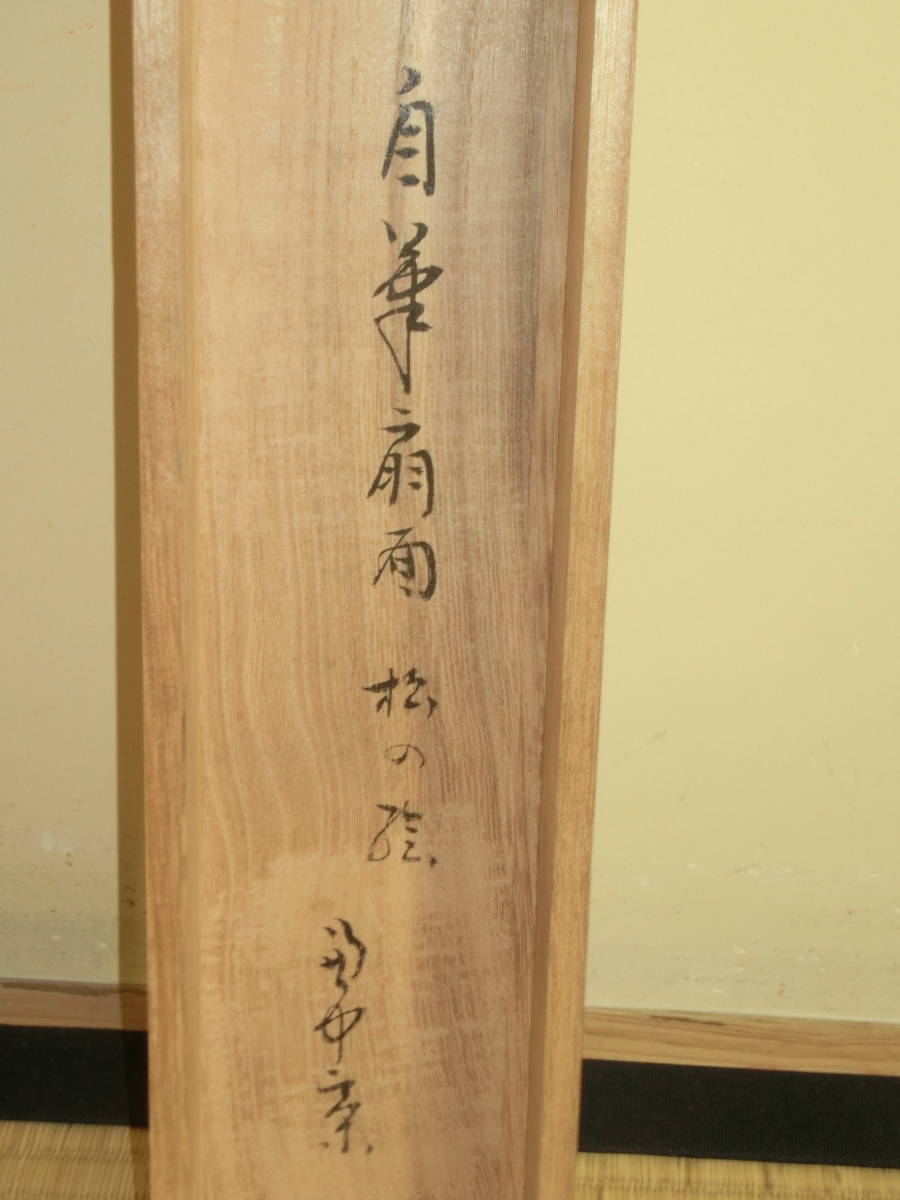 自筆扇面 松の絵
宗